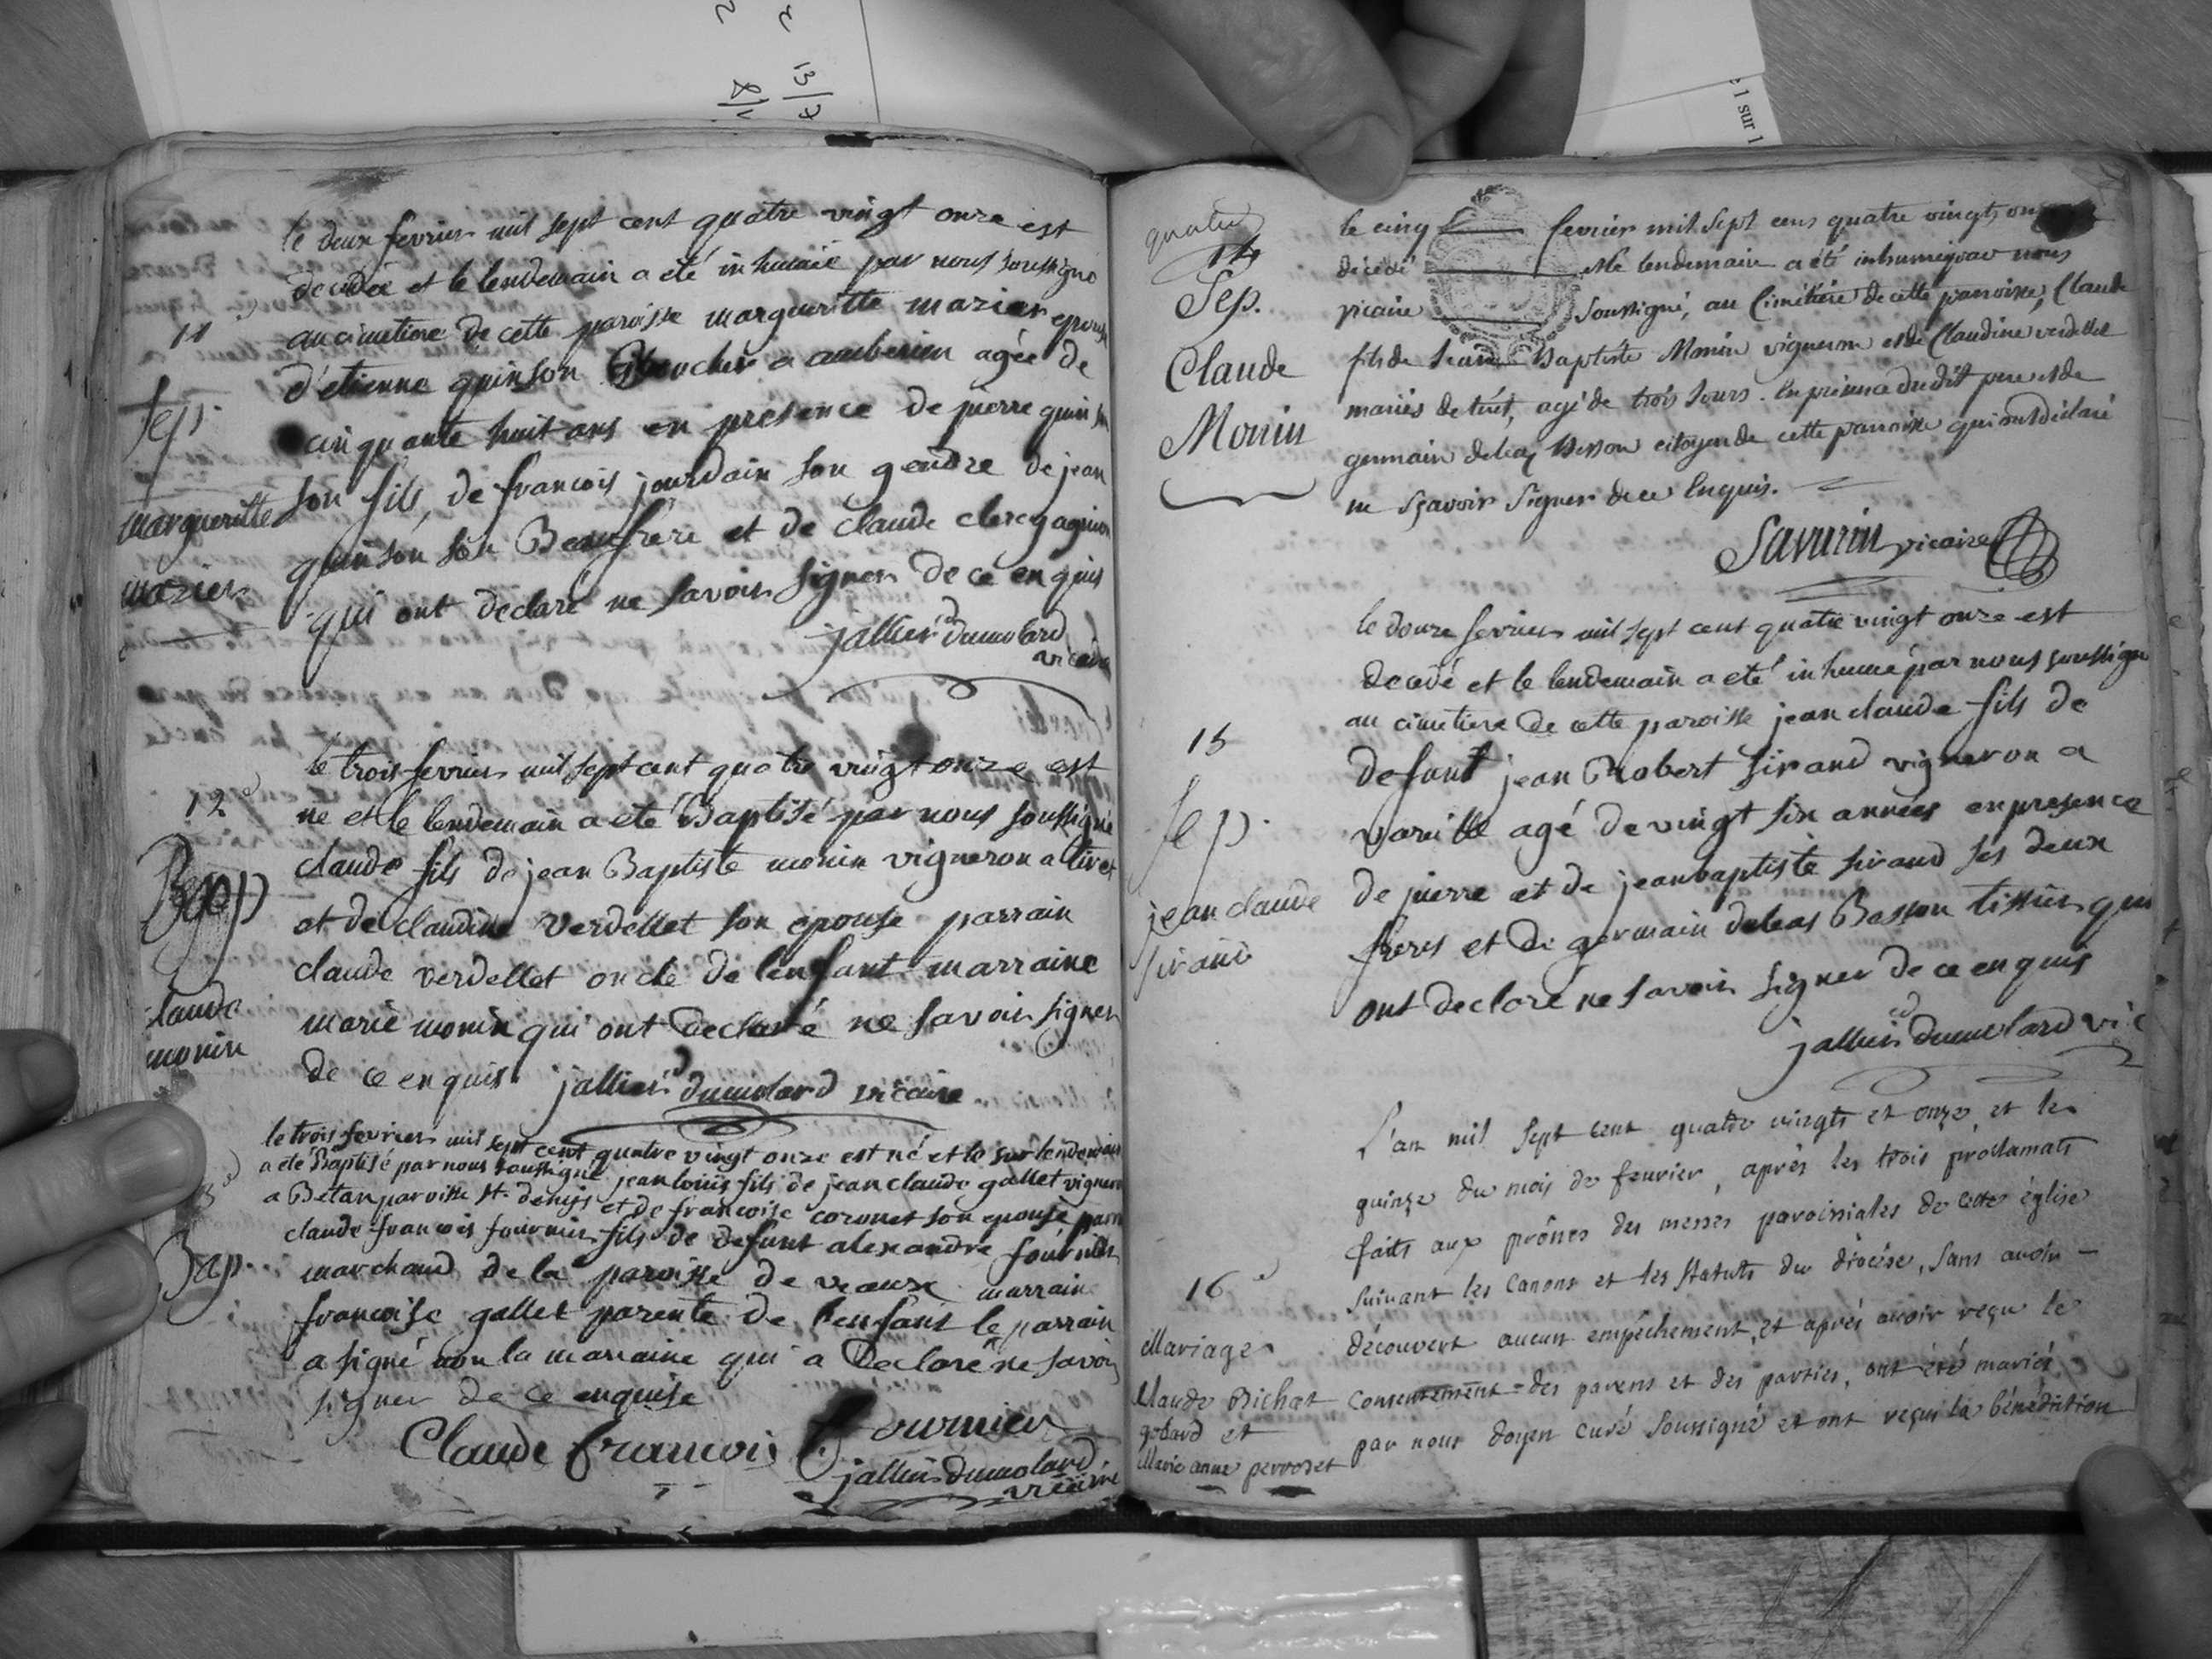 le deux fevrier mil sept cent quatre vingt onze est
decedée et le lendemain a eté inhumée par nous soussigné
11e
au cimetiere de cette paroisse margueritte mazier epouse
d'etienne quinson Boucher a amberieu agée de
Sep.
cinquante huit ans en presence de pierre quinson
son fils, de francois jourdain son gendre de jean
margueritte
quinson son Beaufrere et de claude clerc gagneur
mazier
qui ont declaré ne savoir signer de ce enquis
jallier dumolard
vicaire
le trois fevrier mil sept cent quatre vingt onze est
12e
né et le lendemain a eté Baptisé par nous soussigné
claude fils de jean Baptiste monin vigneron a tiret
Bap
et de claudine verdellet son epouse parrain
claude verdellet oncle de l'enfant marraine
claude
marie monin qui ont declaré ne savoir signer
monin
de ce enquis jallier dumolard vicaire
le trois fevrier mil sept cent quatre vingt onze est né et le surlendemain
a eté Baptisé par nous soussigné jean louis fils de jean claude gallet vigneron
a Betan paroisse st. denys et de francoise coronet son epouse parrain
claude francois fournier fils de defunt alexandre fournier
Bap.
marchand de la paroisse de veaux marraine
francoise gallet parente de l'enfant le parrain
a signé non la marraine qui a declaré ne savoir
signer de ce enquise
Claude francois fournier
jallier dumolard
vicaire
quatre
14
le cinq fevrier mil sept cens quatre vingts onze
décedé et le lendemain a été inhumé par nous
Sep.
vicaire soussigné, au Cimétière de cette parroisse, Claude
Claude
fils de Jean Baptiste Monin vigneron et de Claudine verdellet
Monin
mariés de tiret, agé de trois jours. En présence dudit pere et de
germain deleaz Besson citoyen de cette parroisse qui ont déclaré
ne sçavoir signer de ce Enquis.
Savarin vicaire
le douze fevrier mil sept cent quatre vingt onze est
decedé et le lendemain a eté inhumé par nous soussigné
au cimetiere de cette paroisse jean claude fils de
15
defunt jean Robert sirand vigneron a
Sep.
vareille agé de vingt six années en presence
jean claude
de pierre et de jean baptiste sirand ses deux
sirand
freres et de germain deleas Basson tissier qui
ont declaré ne savoir signer de ce enquis
jallier dumolard vic
L'an mil sept cent quatre vingts et onze et le
quinze du mois de fevrier, après les trois proclamats
faits aux prônes des messes paroissiales de cette église
16e
suivant les Canons et les Statuts du diocèse, sans avoir
Mariage
découvert aucun empêchement, et après avoir reçu le
Claude Bichat
consentement des parens et des parties, ont été mariés
gobard et
par nous doyen curé soussigné et ont reçu la bénédiction
Marie anne perrozet
13/7
8/1
1 sur 1